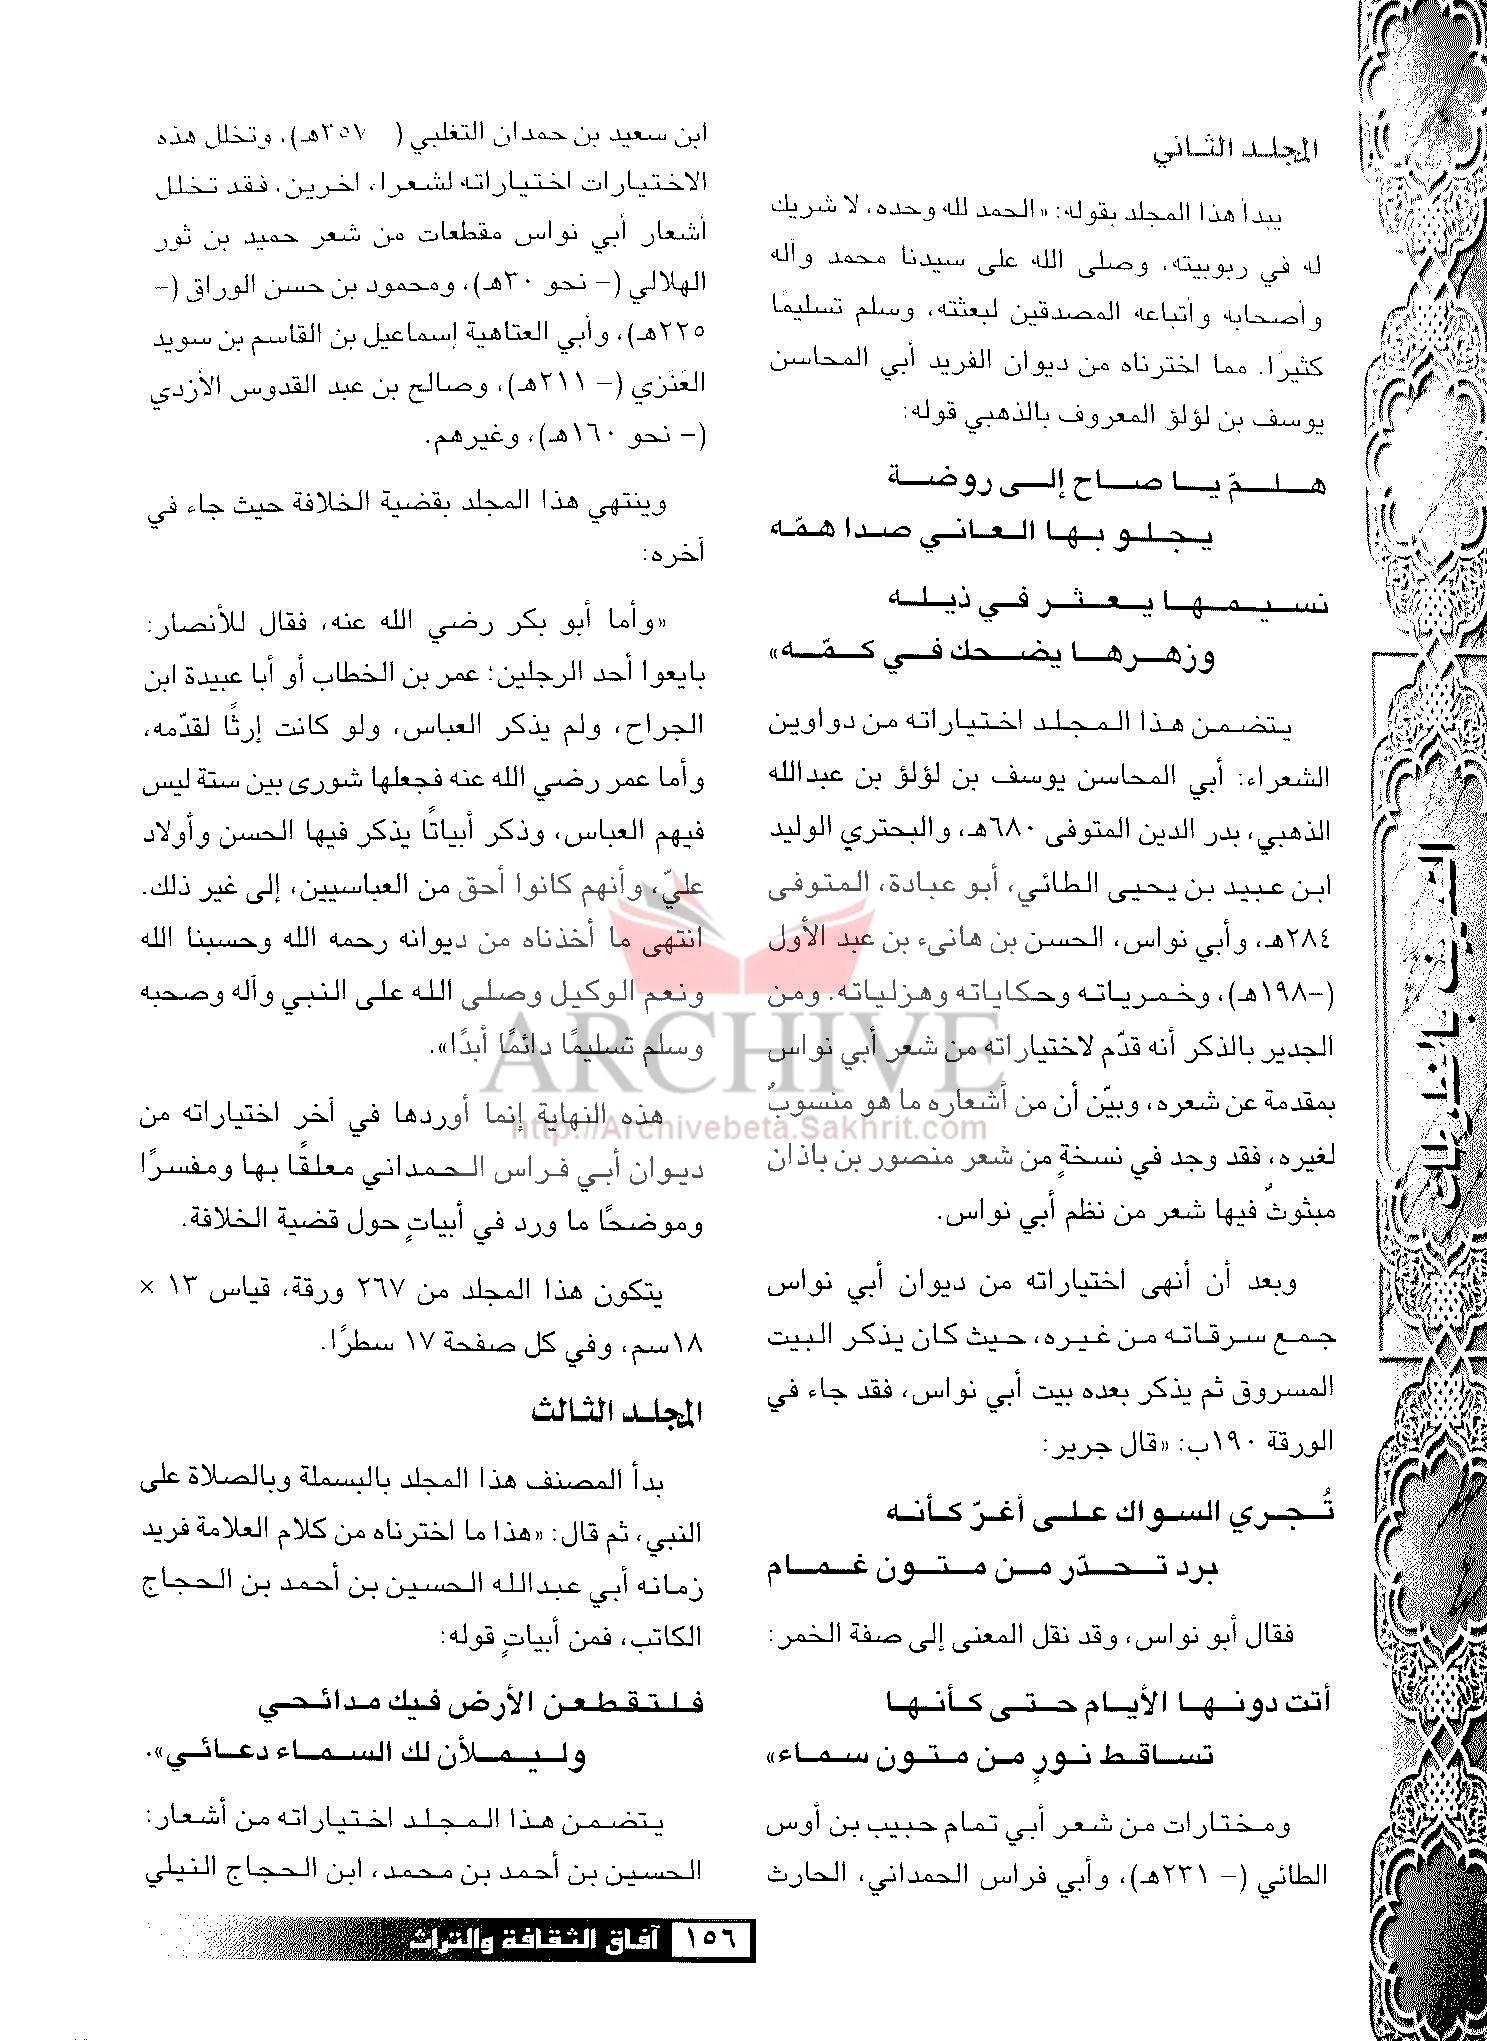 المجلد الثاني
يبدأ هذا المجلد بقوله: «الحمد لله وحده، لا شريك
له في ربوبيته، وصلى الله على سيدنا محمد وآله
وأصحابه وأتباعه المصدقين لبعثته، وسلم تسليمًا
كثيرًا. مما اخترناه من ديوان الفريد أبي المحاسن
يوسف بن لؤلؤ المعروف بالذهبي قوله:
هلمّ يا صاح إلى روضة
يجلو بها العاني صدا همّه
نسيمها يعثر في ذيله
وزهرها يضحك في كمّه»
يتضمن هذا المجلد اختياراته من دواوين
الشعراء: أبي المحاسن يوسف بن لؤلؤ بن عبدالله
الذهبي، بدر الدين المتوفى ٦٨٠هـ، والبحتري الوليد
ابن عبيد بن يحيى الطائي، أبو عبادة، المتوفى
٢٨٤هـ، وأبي نواس، الحسن بن هانىء بن عبد الأول
(-١٩٨هـ)، وخمرياته وحكاياته وهزلياته. ومن
الجدير بالذكر أنه قدّم لاختياراته من شعر أبي نواس
بمقدمة عن شعره، وبيّن أن من أشعاره ما هو منسوبٌ
لغيره، فقد وجد في نسخةٍ من شعر منصور بن باذان
مبثوثٌ فيها شعر من نظم أبي نواس.
وبعد أن أنهى اختياراته من ديوان أبي نواس
جمع سرقاته من غيره، حيث كان يذكر البيت
المسروق ثم يذكر بعده بيت أبي نواس، فقد جاء في
الورقة ١٩٠ب: «قال جرير:
تُجري السواك على أغرّ كأنه
برد تحدّر من متون غمام
فقال أبو نواس، وقد نقل المعنى إلى صفة الخمر:
أتت دونها الأيام حتى كأنها
تساقط نورٍ من متون سماء»
ومختارات من شعر أبي تمام حبيب بن أوس
الطائي (- ٢٣١هـ)، وأبي فراس الحمداني، الحارث
ابن سعيد بن حمدان التغلبي ( ٣٥٧هـ)، وتخلل هذه
الاختيارات اختياراته لشعراء، آخرين، فقد تخلل
أشعار أبي نواس مقطعات من شعر حميد بن ثور
الهلالي (- نحو ٣٠هـ)، ومحمود بن حسن الوراق (-
٢٢٥هـ)، وأبي العتاهية إسماعيل بن القاسم بن سويد
العَنَزي (- ٢١١هـ)، وصالح بن عبد القدوس الأزدي
(- نحو ١٦٠هـ)، وغيرهم.
وينتهي هذا المجلد بقضية الخلافة حيث جاء في
آخره:
«وأما أبو بكر رضي الله عنه، فقال للأنصار:
بايعوا أحد الرجلين؛ عمر بن الخطاب أو أبا عبيدة ابن
الجراح، ولم يذكر العباس، ولو كانت إرثًا لقدّمه،
وأما عمر رضي الله عنه فجعلها شورى بين ستة ليس
فيهم العباس، وذكر أبياتًا يذكر فيها الحسن وأولاد
عليّ، وأنهم كانوا أحق من العباسيين، إلى غير ذلك.
انتهى ما أخذناه من ديوانه رحمه الله وحسبنا الله
ونعم الوكيل وصلى الله على النبي وآله وصحبه
وسلم تسليمًا دائمًا أبدًا».
هذه النهاية إنما أوردها في آخر اختياراته من
ديوان أبي فراس الحمداني معلقًا بها ومفسرًا
وموضحًا ما ورد في أبياتٍ حول قضية الخلافة.
يتكون هذا المجلد من ٢٦٧ ورقة، قياس ١٣ ×
١٨سم، وفي كل صفحة ١٧ سطرًا.
المجلد الثالث
بدأ المصنف هذا المجلد بالبسملة وبالصلاة على
النبي، ثم قال: «هذا ما اخترناه من كلام العلامة فريد
زمانه أبي عبدالله الحسين بن أحمد بن الحجاج
الكاتب، فمن أبياتٍ قوله:
فلتقطعن الأرض فيك مدائحي
وليملأن لك السماء دعائي».
يتضمن هذا المجلد اختياراته من أشعار:
الحسين بن أحمد بن محمد، ابن الحجاج النيلي
١٥٦ آفاق الثقافة والتراث
ARCHIVE
http://Archivebeta.Sakhrit.com